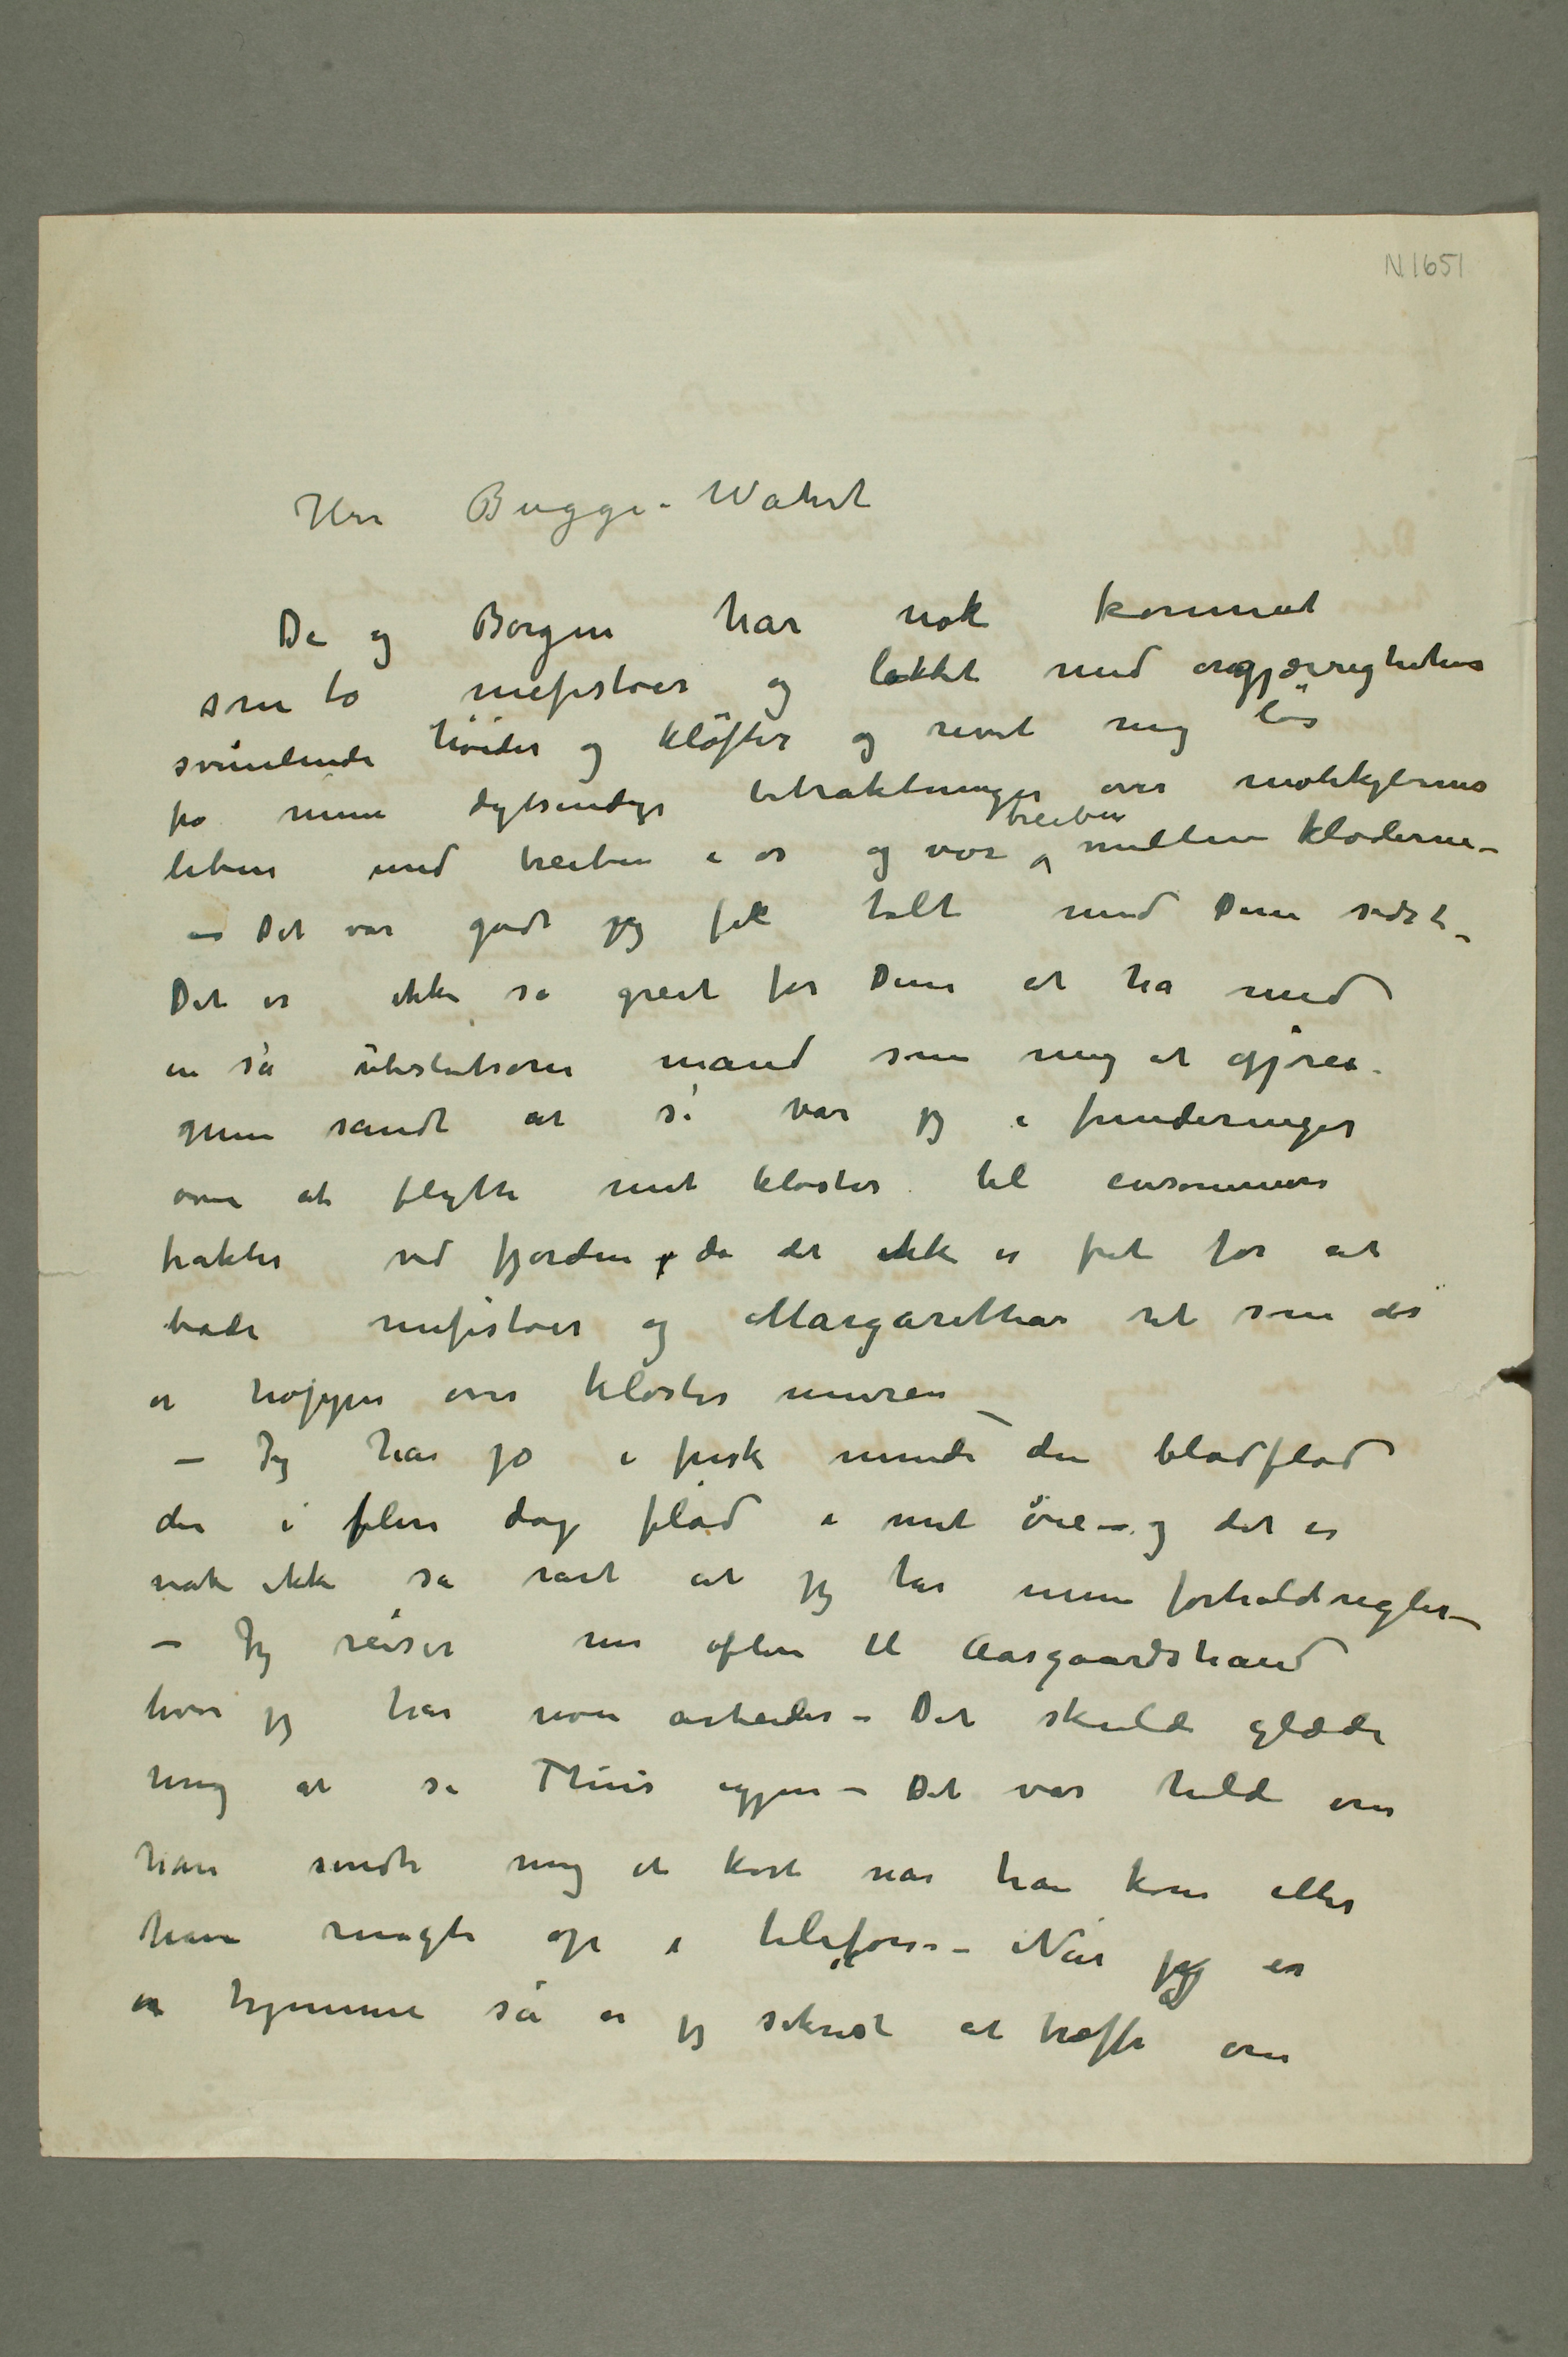 N 1651
Herr Bugge-Wahrt
De og Borgen har nok kommet
som to mefistoer og lokket med ærgjærrighetens
svimlende höider og klöfter og revet mig lös
fra mine dybsindige betraktninger over molekylernes
leben und treiben i os og vor treiben mellem kloderne –
– Det var godt jeg fik talt med Dem sidst –
Det er ikke så greit for Dem at ha med
en så ubeslutsom mand som mig at gjöre.
Men sandt at si var jeg i funderinger
om at flytte mit kloster til ensommere
trakter ved fjorden, da det ikke er frit for at
både mefistoer og Margarethar ret som det
er hopper over kloster muren –
– Jeg har jo i frisk minde den blodflod
der i flere dage flöd i mit öie – og det er
nok ikke så rart at jeg tar mine forholdsregler –
– Jeg reiser nu oftere til Aasgaardstrand
hvor jeg har noen arbeider – Det skulde glæde
mig at se Thiis igjen – Det var heldig om
han sendte mig et kort når han kom eller
han ringte op i telefon – Når jeg er
er hjemme så er jeg sikrest at træffe om